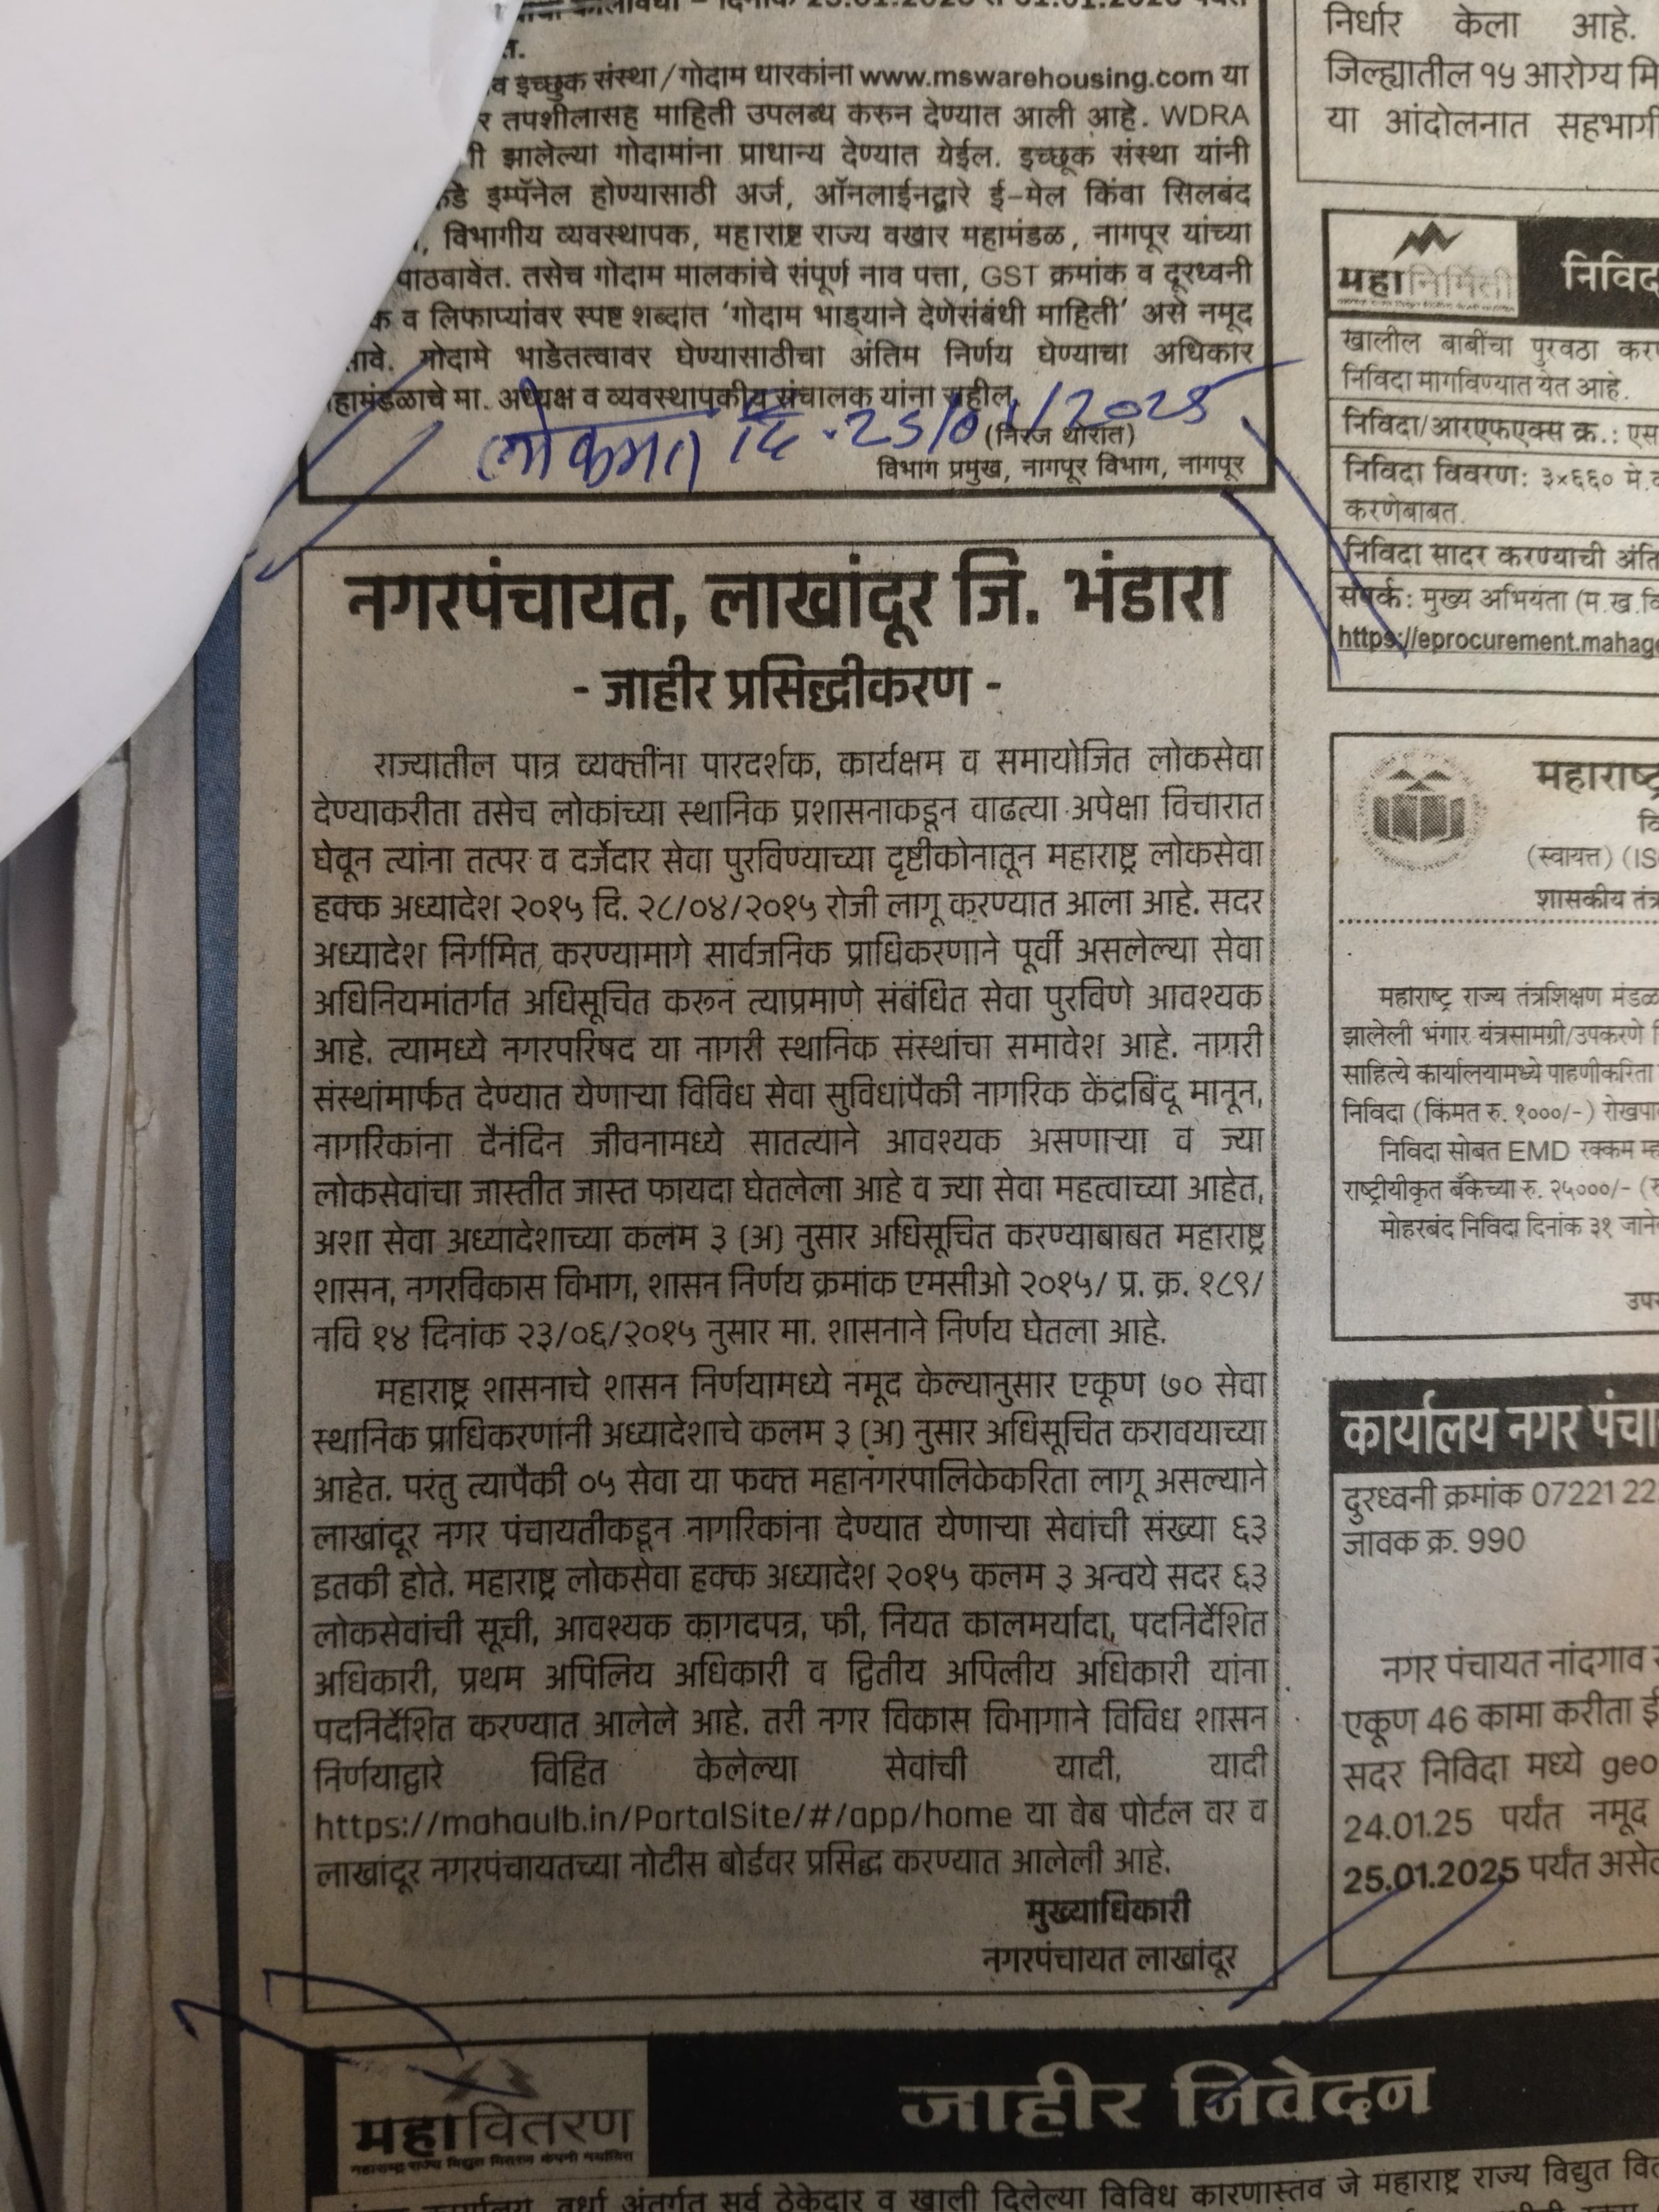 इच्छुक संस्था/गोदाम धारकांना www.mswarehousing.com या
तपशीलासह माहिती उपलब्ध करुन देण्यात आली आहे. WDRA
झालेल्या गोदामांना प्राधान्य देण्यात येईल. इच्छूक संस्था यांनी
इम्पॅनेल होण्यासाठी अर्ज, ऑनलाईनद्वारे ई-मेल किंवा सिलबंद
विभागीय व्यवस्थापक, महाराष्ट्र राज्य वखार महामंडळ, नागपूर यांच्या
पाठवावेत. तसेच गोदाम मालकांचे संपूर्ण नाव पत्ता, GST क्रमांक व दूरध्वनी
व लिफाप्यांवर स्पष्ट शब्दांत 'गोदाम भाड्याने देणेसंबंधी माहिती' असे नमूद
गोदामे भाडेतत्वावर घेण्यासाठीचा अंतिम निर्णय घेण्याचा अधिकार
मा. अध्यक्ष व व्यवस्थापकीय संचालक यांना राहील.
लोकमत दि. 25/01/2025
(निरज थोरात)
विभाग प्रमुख, नागपूर विभाग, नागपूर
नगरपंचायत, लाखांदूर जि. भंडारा
- जाहीर प्रसिद्धीकरण -
राज्यातील पात्र व्यक्तींना पारदर्शक, कार्यक्षम व समायोजित लोकसेवा
देण्याकरीता तसेच लोकांच्या स्थानिक प्रशासनाकडून वाढत्या अपेक्षा विचारात
घेवून त्यांना तत्पर व दर्जेदार सेवा पुरविण्याच्या दृष्टीकोनातून महाराष्ट्र लोकसेवा
हक्क अध्यादेश २०१५ दि. २८/०४/२०१५ रोजी लागू करण्यात आला आहे. सदर
अध्यादेश निर्गमित करण्यामागे सार्वजनिक प्राधिकरणाने पूर्वी असलेल्या सेवा
अधिनियमांतर्गत अधिसूचित करून त्याप्रमाणे संबंधित सेवा पुरविणे आवश्यक
आहे. त्यामध्ये नगरपरिषद या नागरी स्थानिक संस्थांचा समावेश आहे. नागरी
संस्थांमार्फत देण्यात येणाऱ्या विविध सेवा सुविधांपैकी नागरिक केंद्रबिंदू मानून,
नागरिकांना दैनंदिन जीवनामध्ये सातत्याने आवश्यक असणाऱ्या व ज्या
लोकसेवांचा जास्तीत जास्त फायदा घेतलेला आहे व ज्या सेवा महत्वाच्या आहेत,
अशा सेवा अध्यादेशाच्या कलम ३ (अ) नुसार अधिसूचित करण्याबाबत महाराष्ट्र
शासन, नगरविकास विभाग, शासन निर्णय क्रमांक एमसीओ २०१५/ प्र. क्र. १८९/
नवि १४ दिनांक २३/०६/२०१५ नुसार मा. शासनाने निर्णय घेतला आहे.
महाराष्ट्र शासनाचे शासन निर्णयामध्ये नमूद केल्यानुसार एकूण ७० सेवा
स्थानिक प्राधिकरणांनी अध्यादेशाचे कलम ३ (अ) नुसार अधिसूचित करावयाच्या
आहेत. परंतु त्यापैकी ०५ सेवा या फक्त महानगरपालिकेकरिता लागू असल्याने
लाखांदूर नगर पंचायतीकडून नागरिकांना देण्यात येणाऱ्या सेवांची संख्या ६३
इतकी होते. महाराष्ट्र लोकसेवा हक्क अध्यादेश २०१५ कलम ३ अन्वये सदर ६३
लोकसेवांची सूची, आवश्यक कागदपत्र, फी, नियत कालमर्यादा, पदनिर्देशित
अधिकारी, प्रथम अपिलिय अधिकारी व द्वितीय अपिलीय अधिकारी यांना
पदनिर्देशित करण्यात आलेले आहे. तरी नगर विकास विभागाने विविध शासन
निर्णयाद्वारे विहित केलेल्या सेवांची यादी, यादी
https://mahaulb.in/PortalSite/#/app/home या वेब पोर्टल वर व
लाखांदूर नगरपंचायतच्या नोटीस बोर्डवर प्रसिद्ध करण्यात आलेली आहे.
मुख्याधिकारी
नगरपंचायत लाखांदूर
महावितरण
जाहीर निवेदन
वर्धा अंतर्गत सर्व ठेकेदार व खाली दिलेल्या विविध कारणास्तव जे महाराष्ट्र राज्य विद्युत
निर्धार केला आहे.
जिल्ह्यातील १५ आरोग्य
या आंदोलनात सहभागी
महानिर्मिती
खालील बाबींचा पुरवठा
निविदा मागविण्यात येत आहे.
निविदा/आरएफएक्स क्र.:
निविदा विवरण: ३×६६० मे.
करणेबाबत.
निविदा सादर करण्याची
संपर्क: मुख्य अभियंता
https://eprocurement.mahag
महाराष्ट्र
(स्वायत्त) (IS
शासकीय
महाराष्ट्र राज्य तंत्रशिक्षण मंडळ
झालेली भंगार यंत्रसामग्री/उपकरणे
साहित्ये कार्यालयामध्ये पाहणीकरिता
निविदा (किंमत रु. १०००/-)
निविदा सोबत EMD रक्कम
राष्ट्रीयीकृत बँकेच्या रु. २५०००/-
मोहरबंद निविदा दिनांक ३१
कार्यालय नगर
दुरध्वनी क्रमांक 07221 22
जावक क्र. 990
नगर पंचायत नांदगाव
एकूण 46 कामा करीता
सदर निविदा मध्ये geo
24.01.25 पर्यंत नमूद
25.01.2025 पर्यंत